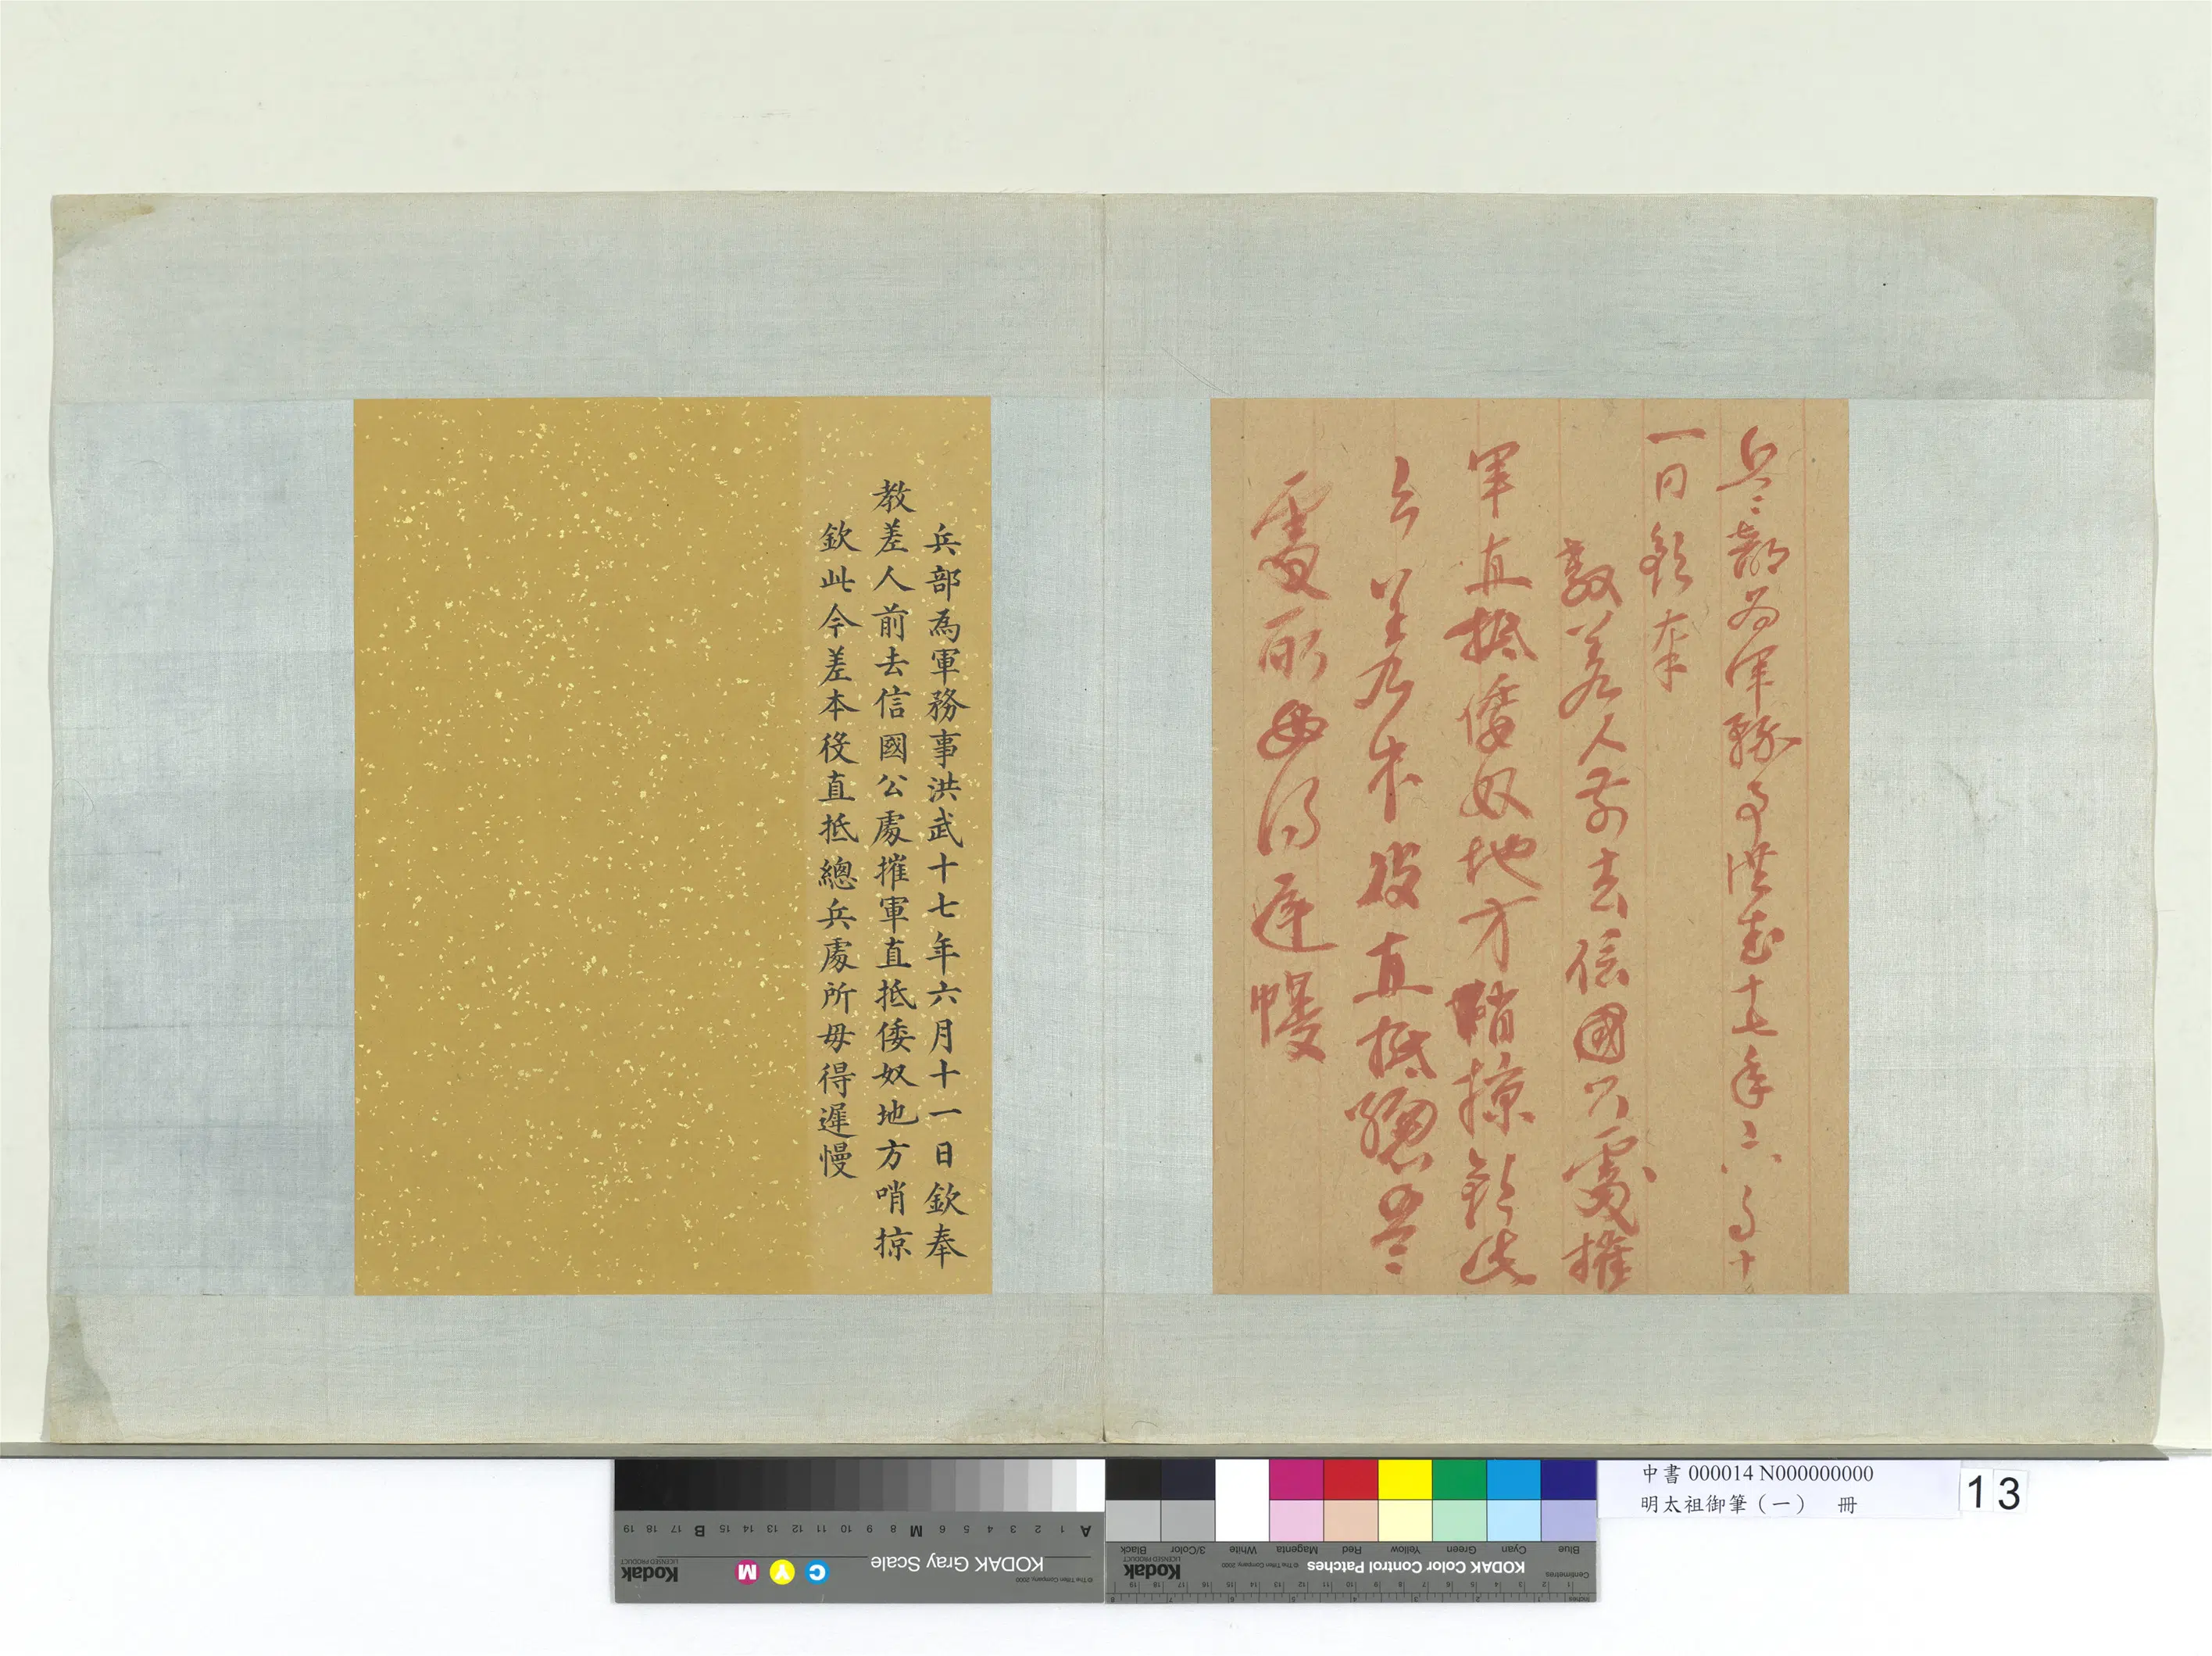 兵部為軍務事洪武十七年六月十
一日欽奉
教差人前去信國公處摧
軍直抵倭奴地方哨掠欽此
今差本役直抵總兵
處所毋得遲慢
兵部為軍務事洪武十七年六月十一日欽奉
教差人前去信國公處摧軍直抵倭奴地方哨掠
欽此今差本役直抵總兵處所毋得遲慢
中書 000014 N000000000
明太祖御筆（一） 冊
13
KODAK Gray Scale
© The Tiffen Company, 2000
Kodak
LICENSED PRODUCT
C Y M
A 1 2 3 4 5 6 M 8 9 10 11 12 13 14 15 B 17 18 19
KODAK Color Control Patches
© The Tiffen Company, 2000
Kodak
LICENSED PRODUCT
Blue Cyan Green Yellow Red Magenta White 3/Color Black
Centimetres
Inches